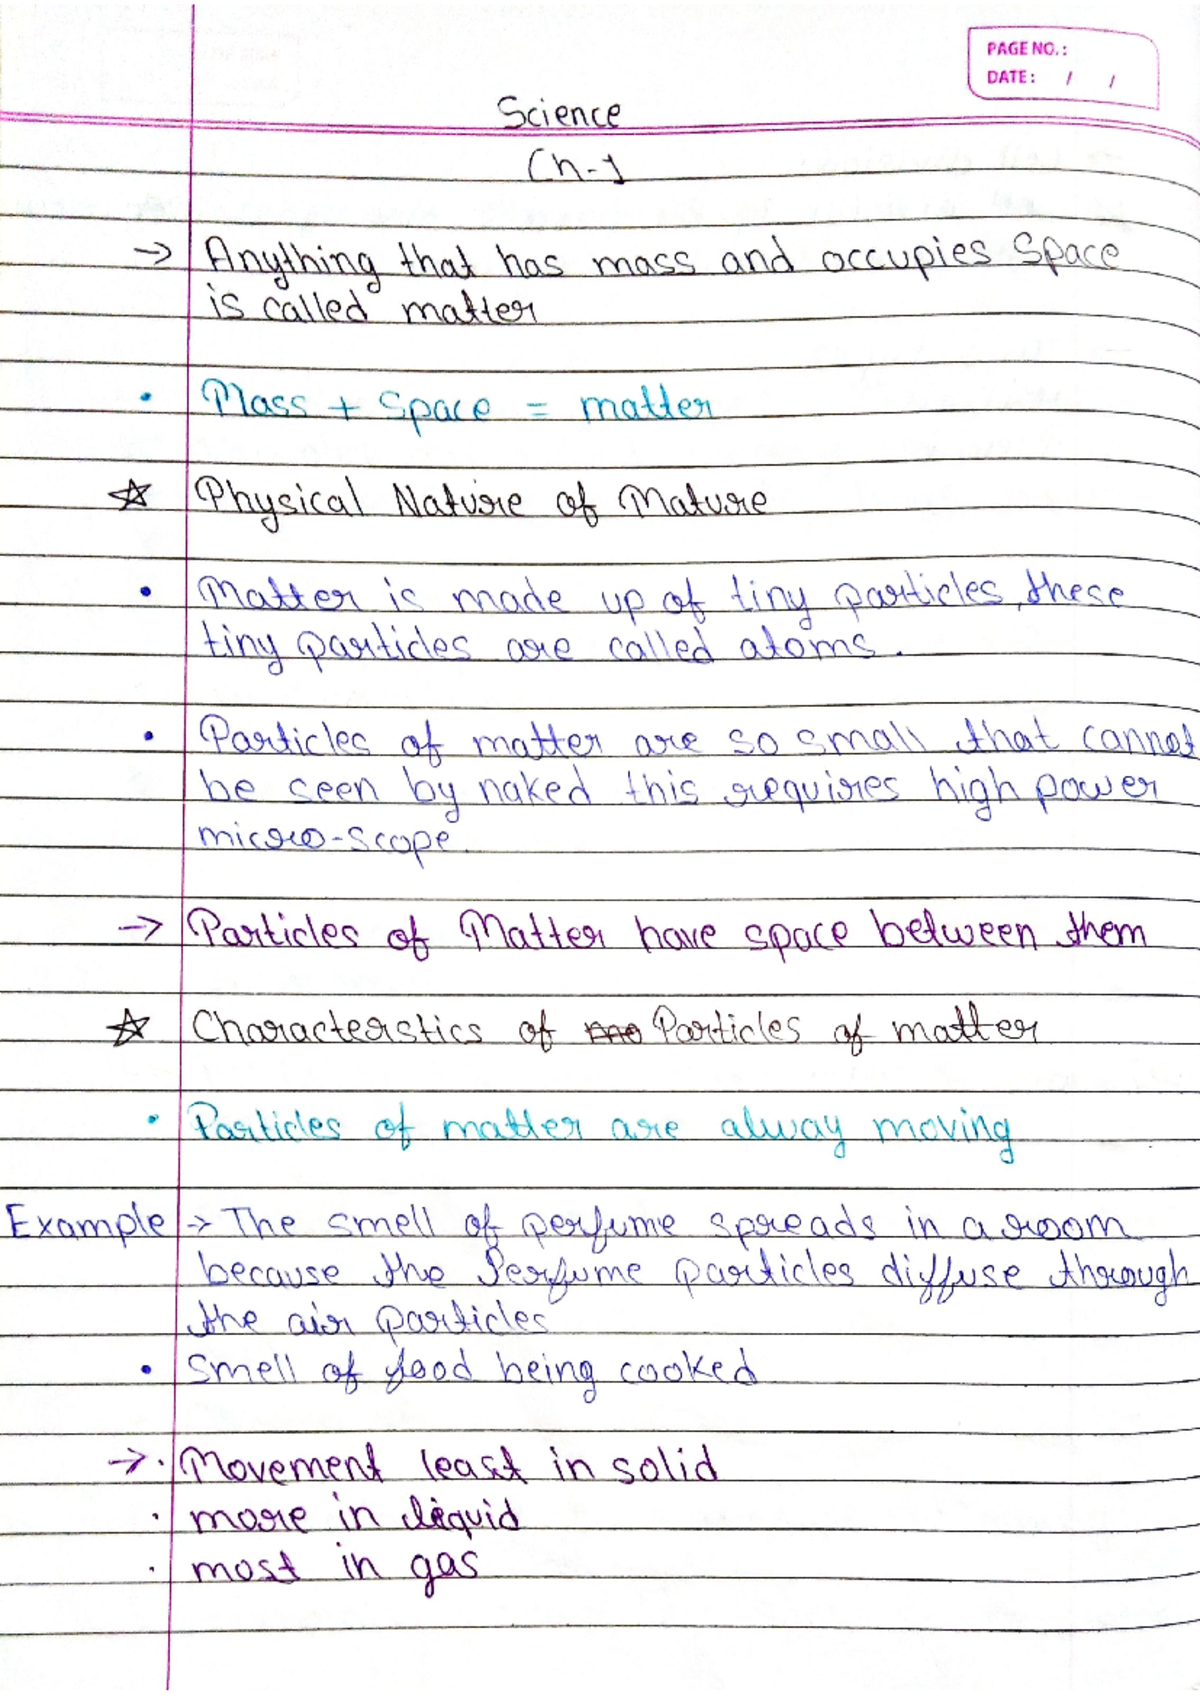 PAGE NO.:
DATE: / /
Science
Ch-1
→ Anything that has mass and occupies Space
is called matter
• Mass + Space = matter
☆ Physical Nature of Mature
• Matter is made up of tiny particles, these
tiny particles are called atoms.
• Particles of matter are so small that cannot
be seen by naked this requires high power
micro-scope.
→ Particles of Matter have space between them
☆ Characterstics of Particles of matter
• Particles of matter are alway moving
Example → The smell of perfume spreads in a room
because the Perfume particles diffuse through
the air particles
• Smell of food being cooked
→ · Movement least in solid
· more in liquid
· most in gas